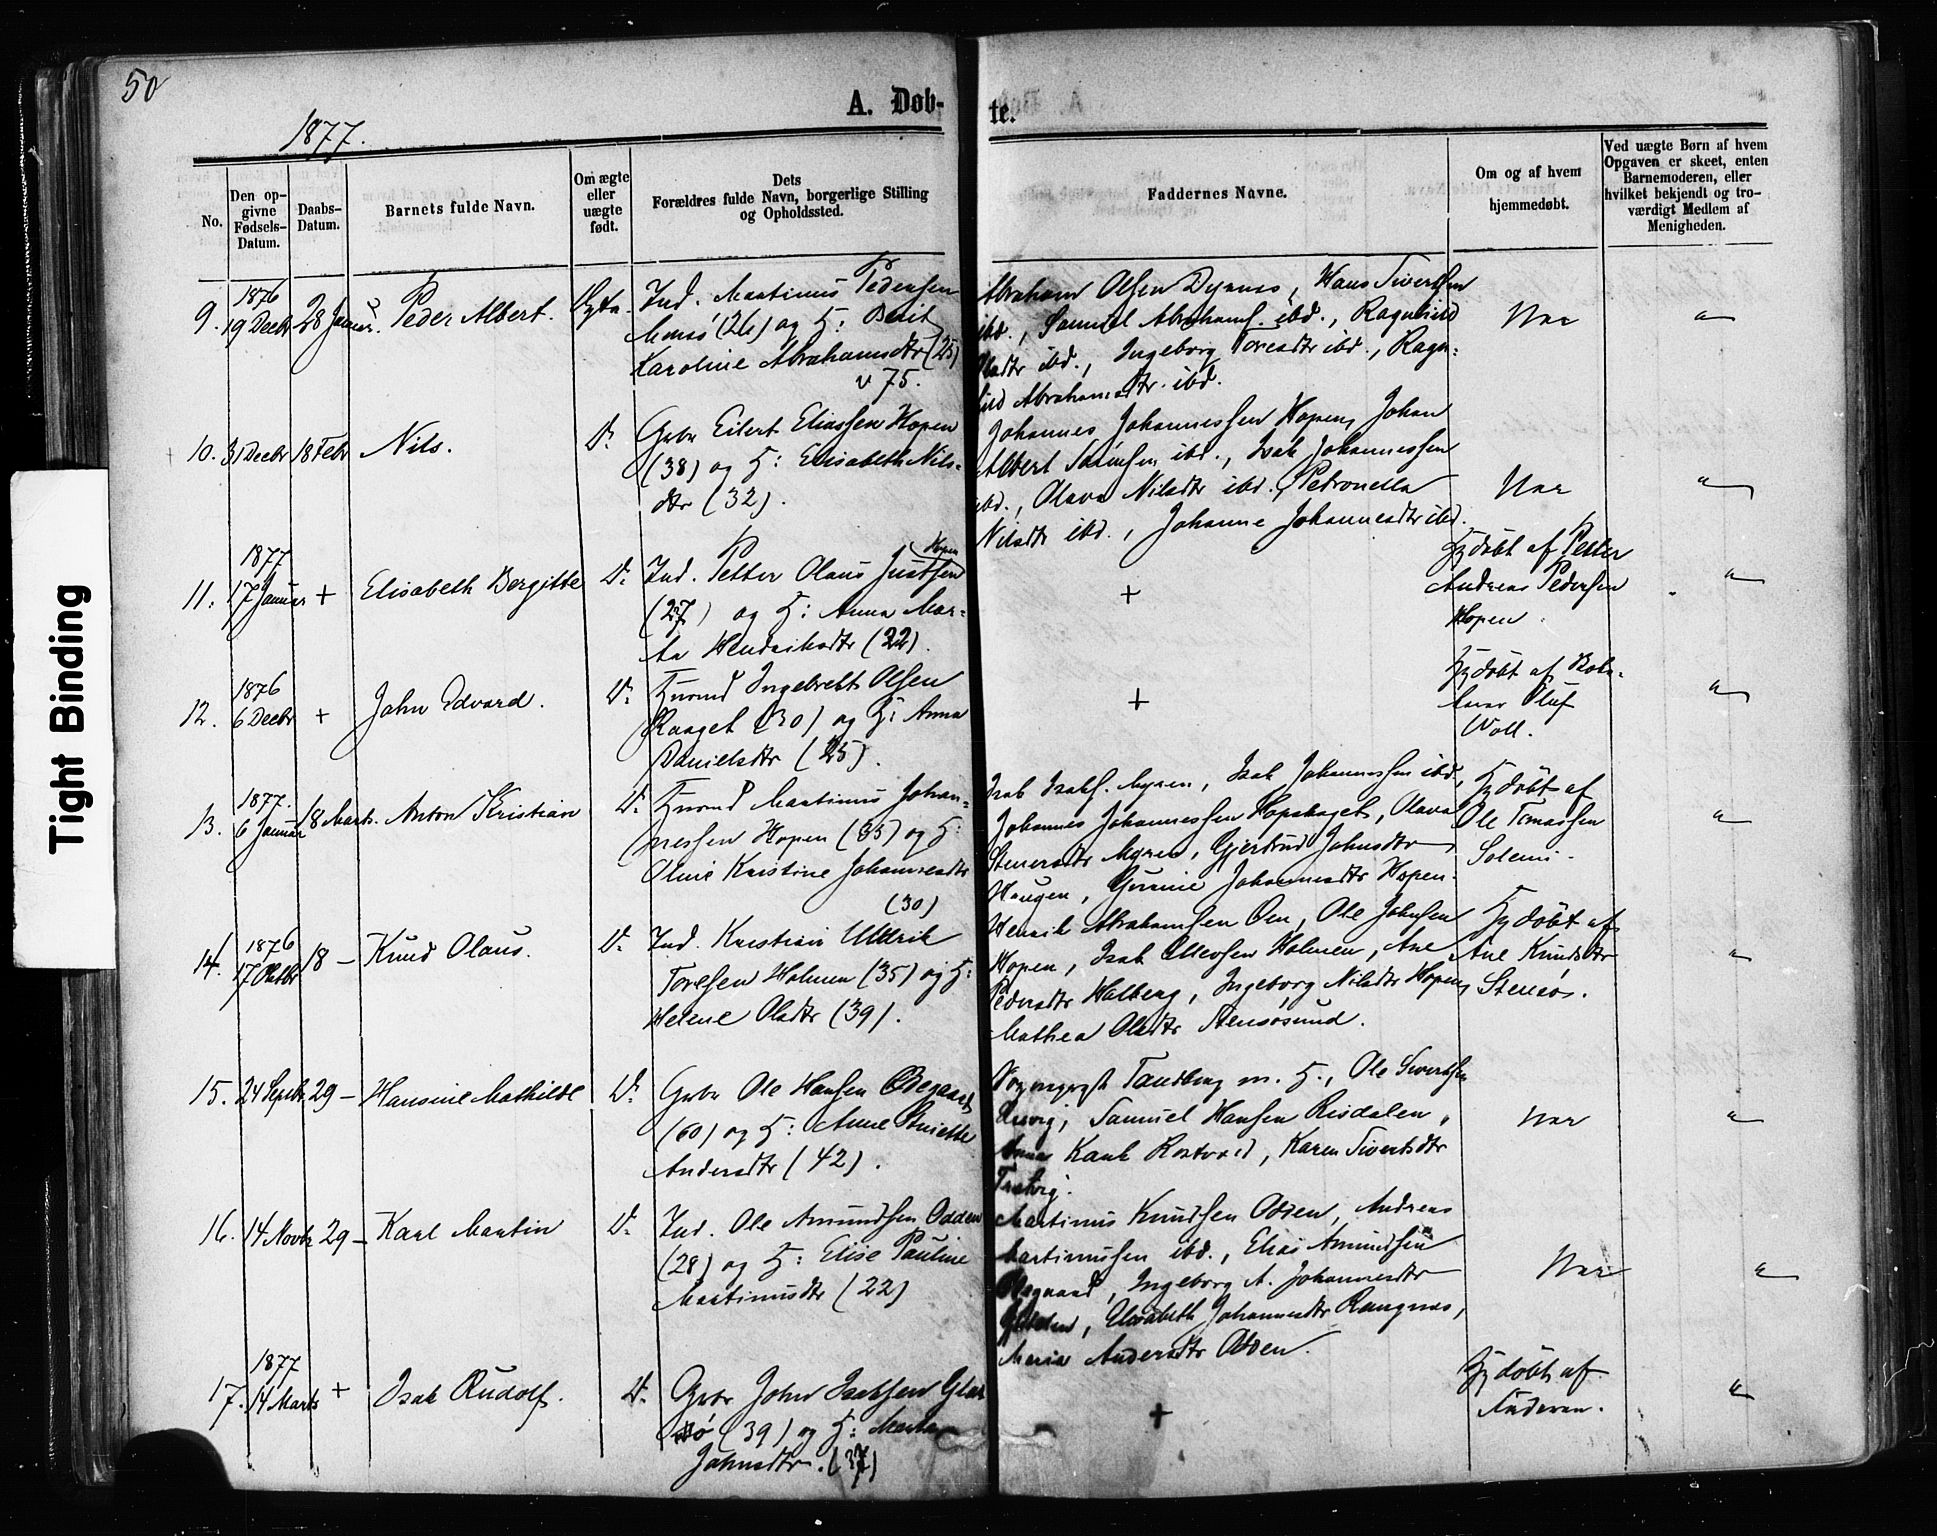 50
A. Døb-
te.
1877.
No.
Den op-
givne
Fødsels-
Datum.
Daabs-
Datum.
Barnets fulde Navn.
Om ægte
eller
uægte
født.
Dets
Forældres fulde Navn, borgerlige Stilling
og Opholdssted.
Faddernes Navne.
Om og af hvem
hjemmedøbt.
Ved uægte Børn af hvem
Opgaven er skeet, enten
Barnemoderen, eller
hvilket bekjendt og tro-
værdigt Medlem af
Menigheden.
9. 1876 19 Decbr 28 Januar. Peder Albert. Ægte.
Ind. Martinus Pedersen
(26) og H: Berit
Karoline Abrahamsdtr (25)
v 75.
Abraham Olsen Dyrnæs, Hans Sivertsen
ibd., Samuel Abrahams. ibd., Ragnhild
Olsdtr ibd., Ingeborg Toresdtr ibd., Ragn-
hild Abrahamsdtr. ibd.
10. 31 Decbr 18 Febr Nils. D.
Gbr Eilert Eliassen Hopen
(38) og H: Elisabeth Nils-
dtr (32).
Johannes Johannessen Hopen, Johan
Albert ibd., Isak Johannessen
ibd., Olava Nilsdtr ibd., Petronella
Nilsdtr ibd., Johanne Johannesdtr ibd.
11. 1877 17 Januar + Elisabeth Bergitte D.
Hopen
Ind. Petter Olaus Justsen
(27) og H: Anna Mar-
ta Hendriksdtr (22).
+
Hjdøbt af Petter
Andreas Pedersen
Hopen.
12. 1876 6 Decbr + John Edvard. D.
Ingebrekt Olsen
(30) og H: Anna
Danielsdtr (25).
+
Hjdøbt af
Oluf
Woll.
13. 1877. 6 Januar 18 Marts. Anton Kristian D.
Martinus Johan-
nessen Hopen (35) og H:
Oline Kristine Johannesdtr
(30)
Isak Isaks. Myren, Isak Johannessen ibd,
Johannes Johannessen Hopshaget, Olava
Myren, Gjertrud Johnsdtr
Haugen, Johannesdtr Hopen.
Hjdøbt af
Ole Tomassen
Solemi.
14. 1876 17 Oktbr 18 – Knud Olaus. D.
Ind. Kristian Uldrik
Toresen Holmen (35) og H:
Helene Olsdtr (39).
Henrik Abrahamsen Øen, Ole Johnsen
Hopen, Isak Ellevsen Holmen, Ane
Pedersdtr Halberg, Ingeborg Nilsdtr Hopen,
Mathea Olsdtr Stensøsund.
Hjdøbt af
Ane Knudsdtr
Stensøs.
15. 24 Septbr 29 – Hansine Mathilde D.
Gbr Ole Hansen Ødegaard
(60) og H: Anne
Andersdtr (42).
Tandberg m. H., Ole Sivertsen
Samuel Hansen Risdalen,
Anna Rostvold, Karen Sivertsdtr
16. 14 Novbr 29 – Karl Martin D.
Ind. Ole Amundsen Odden
(28) og H: Elise Pauline
Martinusdtr (22)
Martinus Knudsen Odden, Andreas
Martinussen ibd., Elias Amundsen
Ingeborg A. Johannesdtr
Elisabeth Johannesdtr Rangnæs,
Maria Andersdtr Odden.
17. 1877 14 Marts + Isak Rudolf. D.
Gbr John Isaksen
(39) og H: Marta
Johnsdtr. (37)
+
Hjdøbt af
Faderen.
Tight Binding